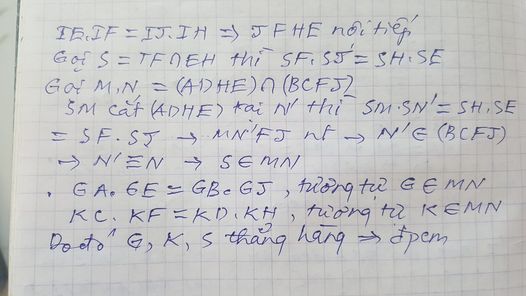 IE.IF = IJ.IH ⇒ JFHE nội tiếp
Gọi S = JF∩EH thì SF.SJ = SH.SE
Gọi M,N = (ADHE)∩(BCFJ)
SM cắt (ADHE) tại N' thì SM.SN' = SH.SE
= SF.SJ → MN'FJ nt → N' ∈ (BCFJ)
→ N' ≡ N → S∈MN
. GA.GE = GB.GJ, tương tự G∈MN
KC.KF = KD.KH, tương tự K∈MN
Do đó G, K, S thẳng hàng ⇒ đpcm